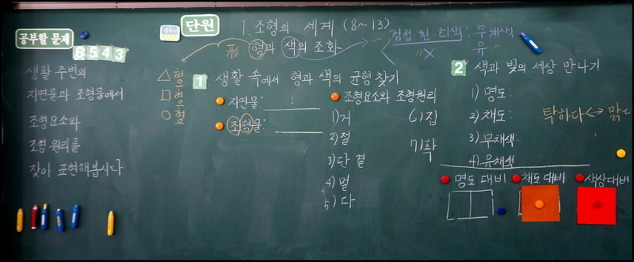 공부할 문제
6 5 4 3
생활 주변의
자연물과 조형물에서
조형요소와
조형원리를
찾아 표현해봅시다
단원
1. 조형의 세계 (8~13)
形 형과 색의 조화
검정 흰 회색 : 무채색
"X 유 "
△ 형
□
○
1 생활 속에서 형과 색의 균형 찾기
자연물:
조형물:
조형요소와 조형원리
1) 거
2) 점
3) 단 결
4) 벌
5) 다
2 색과 빛의 세상 만나기
1) 명도:
2) 채도:
탁하다 ↔ 맑다
3) 무채색:
4) 유채색
명도 대비
채도 대비
색상대비